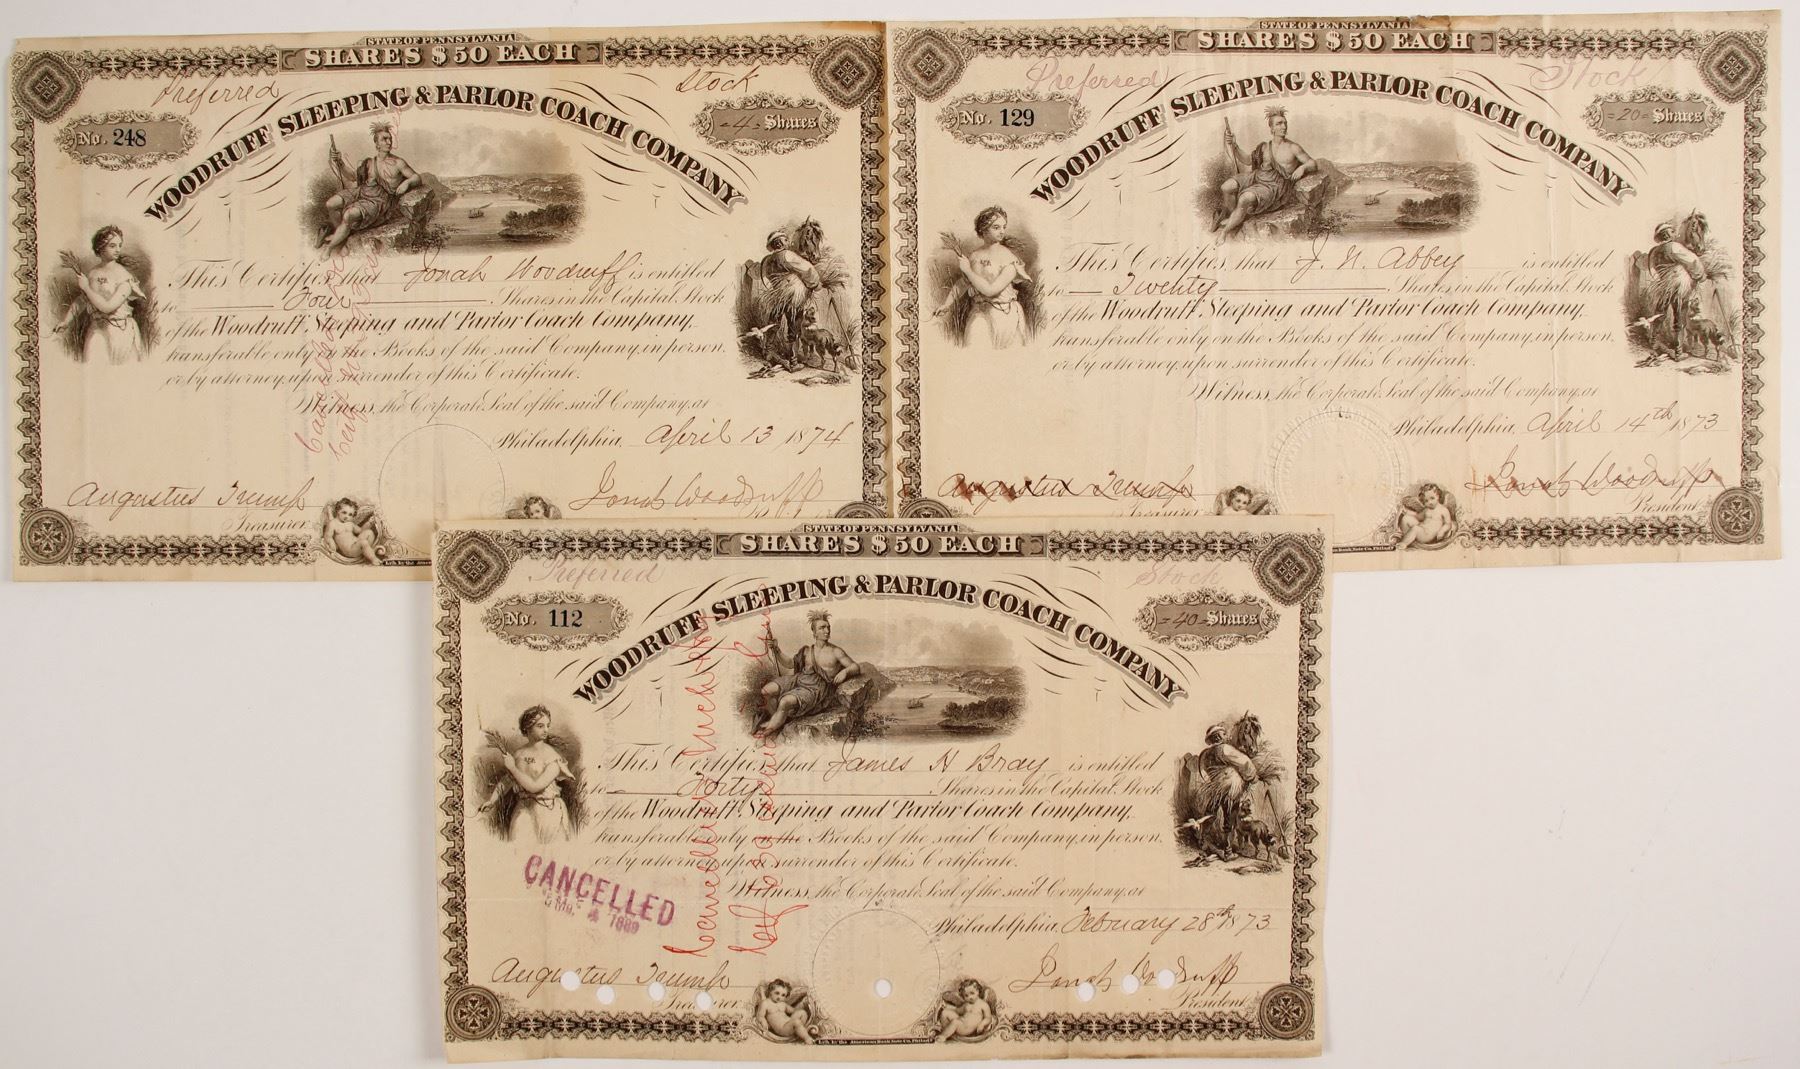 STATE OF PENNSYLVANIA
SHARES $50 EACH
Preferred Stock
No. 248
WOODRUFF SLEEPING & PARLOR COACH COMPANY
=4= Shares
This Certifies that Jonah Woodruff is entitled
to Four Shares in the Capital Stock
of the Woodruff Sleeping and Parlor Coach Company,
transferable only on the Books of the said Company, in person,
or by attorney, upon surrender of this Certificate.
Witness, the Corporate Seal of the said Company, at
Philadelphia, April 13 1874
Augustus Trump
Treasurer
Jonah Woodruff
STATE OF PENNSYLVANIA
SHARES $50 EACH
Preferred Stock
No. 129
WOODRUFF SLEEPING & PARLOR COACH COMPANY
=20= Shares
This Certifies that J. N. Abbey is entitled
to Twenty Shares in the Capital Stock
of the Woodruff Sleeping and Parlor Coach Company,
transferable only on the Books of the said Company, in person,
or by attorney, upon surrender of this Certificate.
Witness, the Corporate Seal of the said Company, at
Philadelphia, April 14th 1873
Augustus Trump
Treasurer
Jonah Woodruff
President
STATE OF PENNSYLVANIA
SHARES $50 EACH
Preferred Stock
No. 112
WOODRUFF SLEEPING & PARLOR COACH COMPANY
=40= Shares
This Certifies that James H Bray is entitled
to Forty Shares in the Capital Stock
of the Woodruff Sleeping and Parlor Coach Company,
transferable only on the Books of the said Company, in person,
or by attorney, upon surrender of this Certificate.
Witness, the Corporate Seal of the said Company, at
Philadelphia, February 28th 1873
CANCELLED
1889
Cancelled March
Augustus Trump
Treasurer
Jonah Woodruff
President
Lith. by the American Bank Note Co. Philada